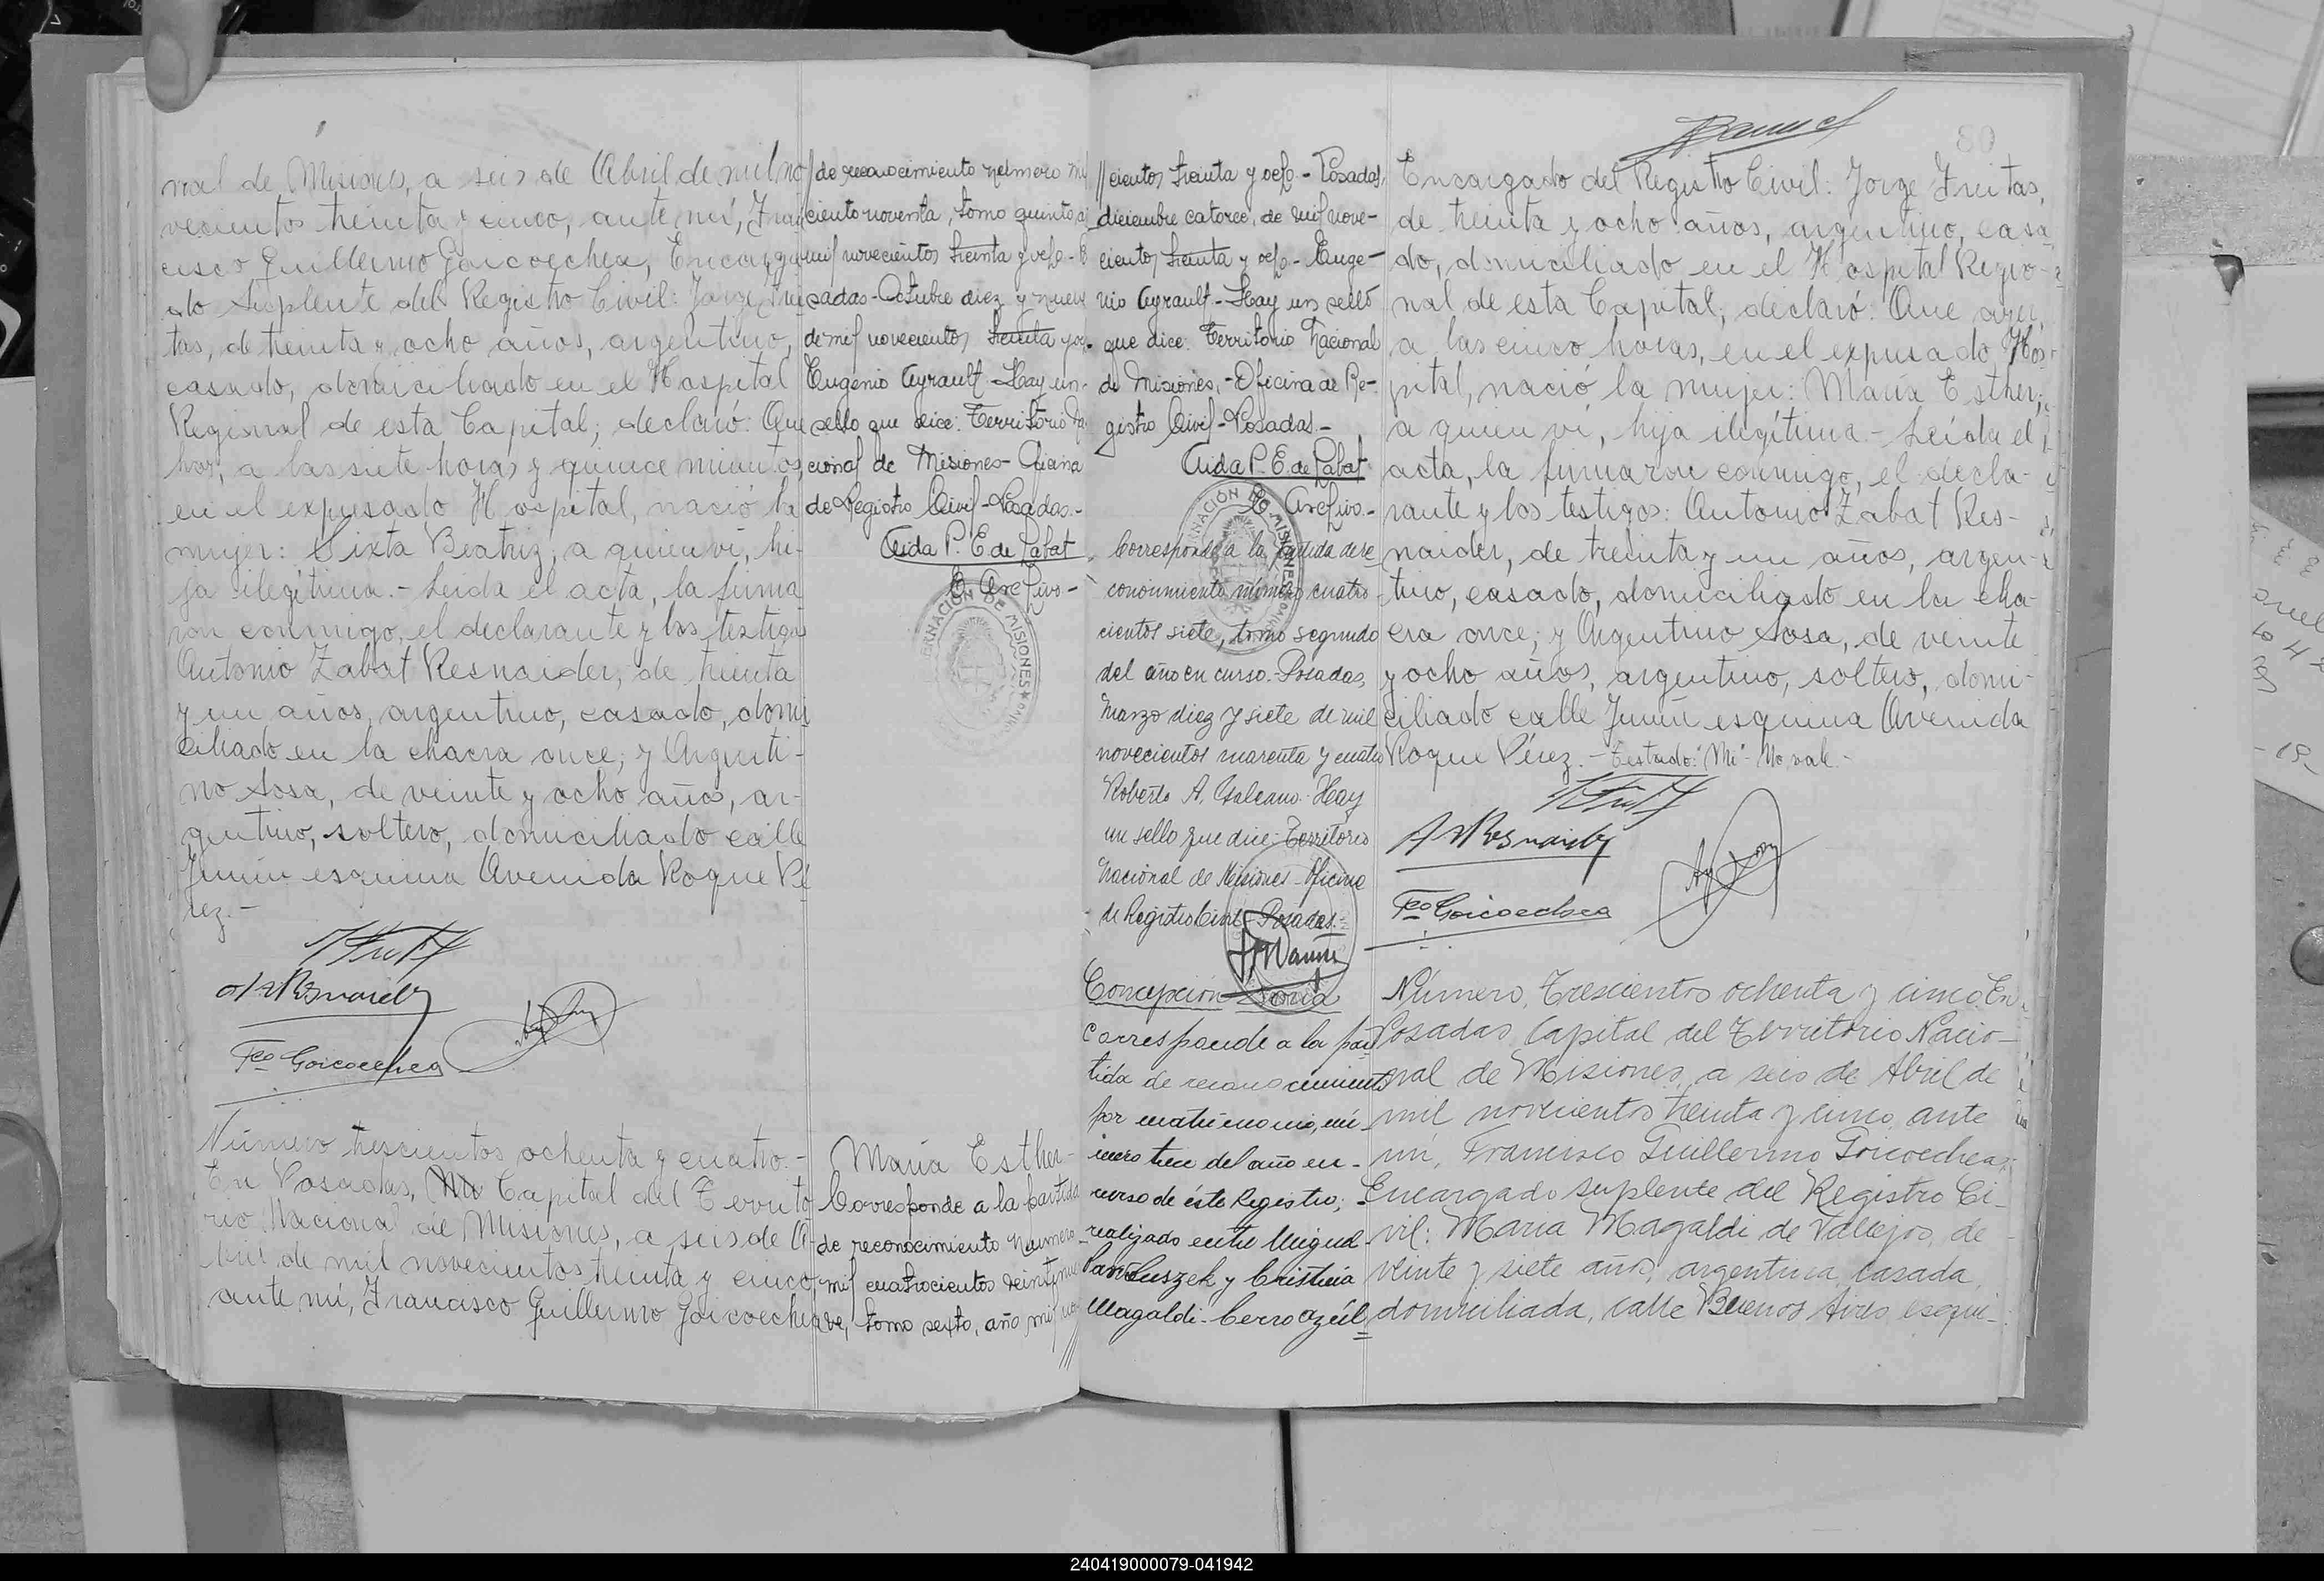 nal de Misiones, a seis de Abril de mil no
vecientos treinta y cinco, ante mí, Fran
cisco Guillermo Goicoechea, Encarga
do Suplente del Registro Civil: Jorge Frei
tas, de treinta y ocho años, argentino,
casado, domiciliado en el Hospital
Regional de esta Capital; declaró: Que
hoy, a las siete horas y quince minutos,
en el expresado Hospital, nació la
mujer: Sixta Beatriz, a quien ví, hi-
ja ilegítima.- Leída el acta, la firma
ron conmigo, el declarante y los testigos
Antonio Zabat Resnaider, de treinta
y un años, argentino, casado, domi
ciliado en la chacra once; y Argenti-
no Sosa, de veinte y ocho años, ar-
gentino, soltero, domiciliado calle
Junín esquina Avenida Roque Pé
rez.-
Fco Goicoechea
Número trescientos ochenta y cuatro.-
En Posadas, Capital del Territo
rio Nacional de Misiones, a seis de A-
bril de mil novecientos treinta y cinco,
ante mí, Francisco Guillermo Goicoechea
de reconocimiento número mil
ciento noventa, tomo quinto,
mil novecientos treinta y ocho-
sadas- Octubre diez y nueve
de mil novecientos treinta y o
Eugenio Ayrault- Hay un
sello que dice: Territorio Na
cional de Misiones- Oficina
de Registro Civil- Posadas.-
Aida P. E. de Labat
E. Archivo-
GOBERNACIÓN DE MISIONES
María Esther-
Corresponde a la partida
de reconocimiento número
mil cuatrocientos veintinue
ve, tomo sexto, año mil no
//
//cientos treinta y ocho- Posadas,
diciembre catorce, de mil nove-
cientos treinta y ocho- Euge-
nio Ayrault- Hay un sello
que dice: Territorio Nacional
de Misiones,- Oficina de Re-
gistro Civil- Posadas-
Aida P. E. de Labat
E. Archivo.-
GOBERNACIÓN DE MISIONES
Corresponde a la partida de re
conocimiento número cuatro
cientos siete, tomo segundo
del año en curso.- Posadas,
Marzo diez y siete de mil
novecientos cuarenta y cuatro
Roberto A. Galeano- Hay
un sello que dice: Territorio
Nacional de Misiones- Oficina
de Registro Civil- Posadas.-
Concepción Sonia
Corresponde a la par
tida de reconocimiento
por matrimonio, nú-
mero trece del año en-
curso de éste Registro;
realizado entre Miguel
Pawluszek y Cristina
Magaldi- Cerro Azúl
80
Encargado del Registro Civil: Jorge Freitas,
de treinta y ocho años, argentino, casa
do, domiciliado en el Hospital Regio-
nal de esta Capital, declaró: Que ayer,
a las cinco horas, en el expresado Hos-
pital, nació la mujer: María Esther,
a quien ví, hija ilegítima.- Leída el
acta, la firmaron conmigo, el decla-
rante y los testigos: Antonio Zabat Res-
naider, de treinta y un años, argen-
tino, casado, domiciliado en la cha-
cra once; y Argentino Sosa, de veinte
y ocho años, argentino, soltero, domi-
ciliado calle Junín esquina Avenida
Roque Pérez.- Testado: "Mi"- No vale.-
Fco Goicoechea
Número, Trescientos ochenta y cinco. En
Posadas Capital del Territorio Nacio-
nal de Misiones, a seis de Abril de
mil novecientos treinta y cinco, ante
mí, Francisco Guillermo Goicoechea,
Encargado suplente del Registro Ci-
vil: Maria Magaldi de Vallejos, de
veinte y siete años, argentina, casada,
domiciliada, calle Buenos Aires esqui-
240419000079-041942